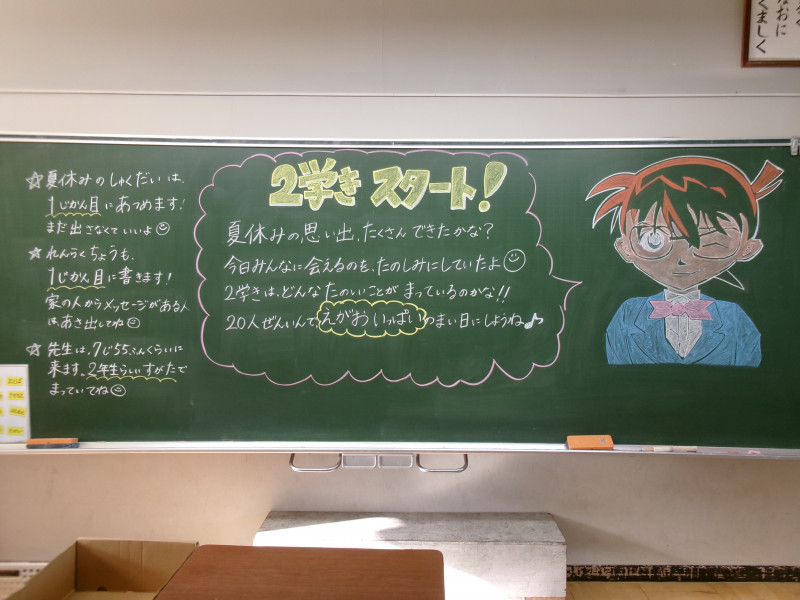 ☆夏休みのしゅくだいは、
1じかん目にあつめます!
まだ出さなくていいよ☺
☆れんらくちょうも、
1じかん目に書きます!
家の人からメッセージがある人
はあさ出してね☺
☆先生は、7じ55ふんくらいに
来ます。2年生らしいすがたで
まっていてね☺
2学き スタート!
夏休みの思い出、たくさんできたかな?
今日みんなに会えるのを、たのしみにしていたよ☺
2学きは、どんなたのいことがまっているのかな!!
20人ぜんいんで、えがおいっぱいのまい日にしようね♪
なおに
くましく